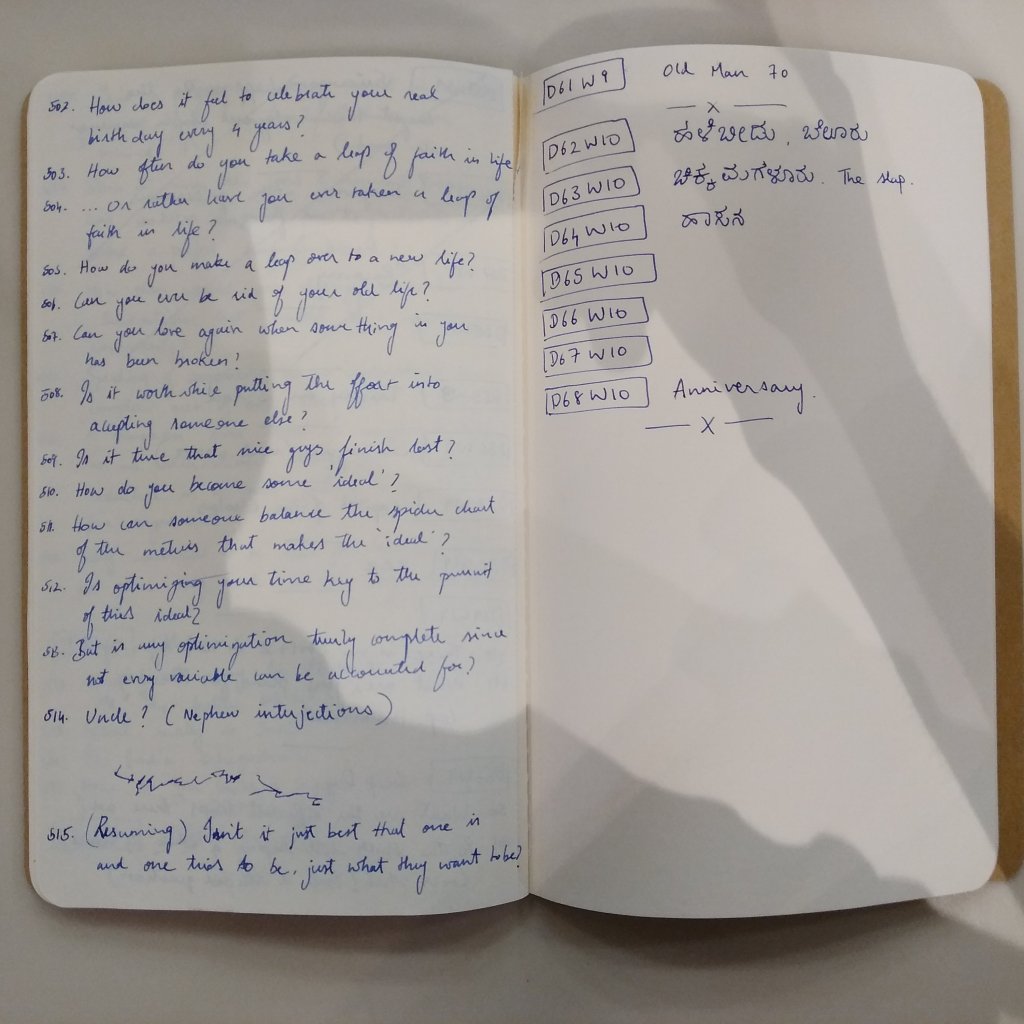 502. How does it feel to celebrate your real
birthday every 4 years?
503. How often do you take a leap of faith in life
504. ... Or rather have you ever taken a leap of
faith in life?
505. How do you make a leap over to a new life?
506. Can you ever be rid of your old life?
507. Can you love again when something in you
has been broken?
508. Is it worthwhile putting the effort into
accepting someone else?
509. Is it true that nice guys finish last?
510. How do you become some 'ideal'?
511. How can someone balance the spider chart
of the metrics that makes the 'ideal'?
512. Is optimizing your time key to the pursuit
of this ideal?
513. But is any optimization truly complete since
not every variable can be accounted for?
514. Uncle? (Nephew interjections)
515. (Resuming) Isn't it just best that one is
and one tries to be, just what they want to be?
D61 W9 Old Man 70
— x —
D62 W10 ಹಳೆಬೀಡು, ಬೇಲೂರು
D63 W10 ಚಿಕ್ಕಮಗಳೂರು. The slap.
D64 W10 ಹಾಸನ
D65 W10
D66 W10
D67 W10
D68 W10 Anniversary.
— X —